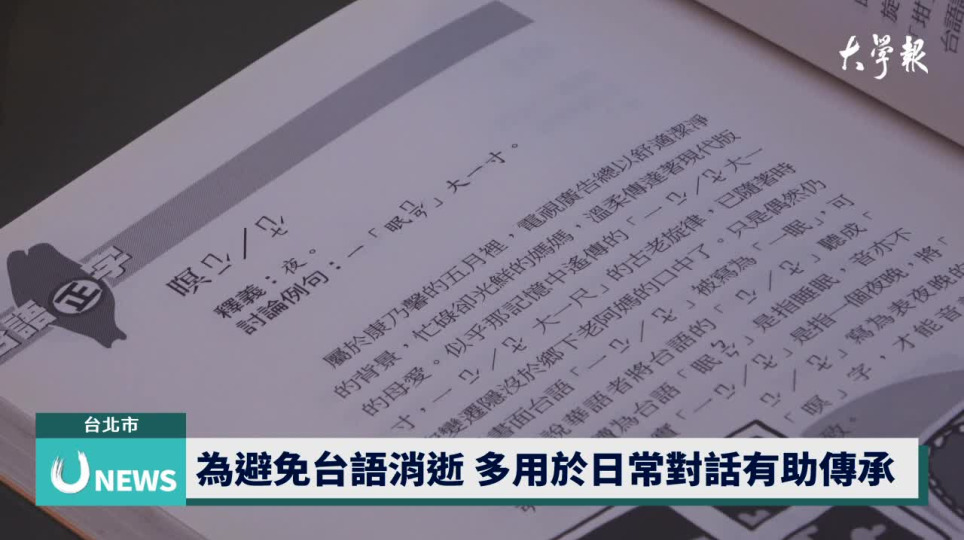 大學報
正字
暝ㄇㄧˊㄝ
釋義：夜。
討論例句：一「眠」大一寸。
屬於康乃馨的五月裡，電視廣告總以舒適潔淨
的背景，忙碌卻光鮮的媽媽，溫柔傳達著現代版
的母愛。似乎那記憶中遙傳的「一ㄇㄧˊㄝ大一
寸，一ㄇㄧˊㄝ大一尺」的古老旋律，已隨著時
變遷隱沒於鄉下老阿媽的口中了。只是偶然仍
書面台語「一ㄇㄧˊㄝ」被寫為「一眠」，可
說華語者將台語的「ㄇㄧˊㄝ」聽成「
為台語「眠」是指睡眠，音亦不
「一ㄇㄧˊㄝ」是指一個夜晚，將「
寫為表夜晚的
「暝」字，才能音
台北市
U NEWS
為避免台語消逝 多用於日常對話有助傳承